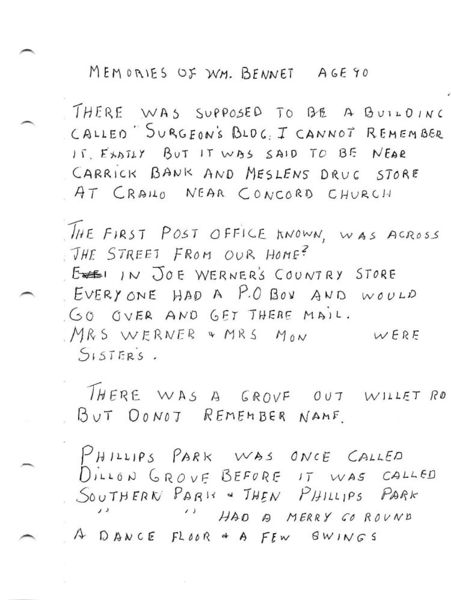 MEMORIES OF WM. BENNET AGE 90
THERE WAS SUPPOSED TO BE A BUILDING
CALLED "SURGEON'S BLDG. I CANNOT REMEMBER
IT. EXATLY BUT IT WAS SAID TO BE NEAR
CARRICK BANK AND MESLENS DRUG STORE
AT CRAILO NEAR CONCORD CHURCH
THE FIRST POST OFFICE KNOWN, WAS ACROSS
THE STREET FROM OUR HOME?
IN JOE WERNER'S COUNTRY STORE
EVERYONE HAD A P.O BOX AND WOULD
GO OVER AND GET THERE MAIL.
MRS WERNER & MRS MON WERE
SISTER'S.
THERE WAS A GROVE OUT WILLET RD
BUT DONOT REMEMBER NAME.
PHILLIPS PARK WAS ONCE CALLED
DILLON GROVE BEFORE IT WAS CALLED
SOUTHERN PARK & THEN PHILLIPS PARK
" " HAD A MERRY GO ROUND
A DANCE FLOOR & A FEW SWINGS